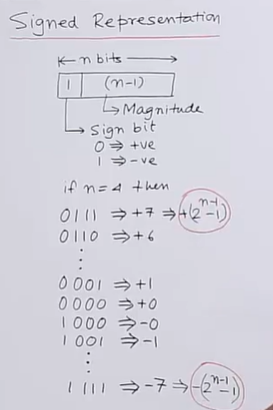 Signed Representation
← n bits →
1 (n-1)
Magnitude
Sign bit
0 ⇒ +ve
1 ⇒ -ve
if n=4 then
0111 ⇒ +7 ⇒ +(2ⁿ⁻¹-1)
0110 ⇒ +6
⋮
0001 ⇒ +1
0000 ⇒ +0
1000 ⇒ -0
1001 ⇒ -1
⋮
1111 ⇒ -7 ⇒ -(2ⁿ⁻¹-1)